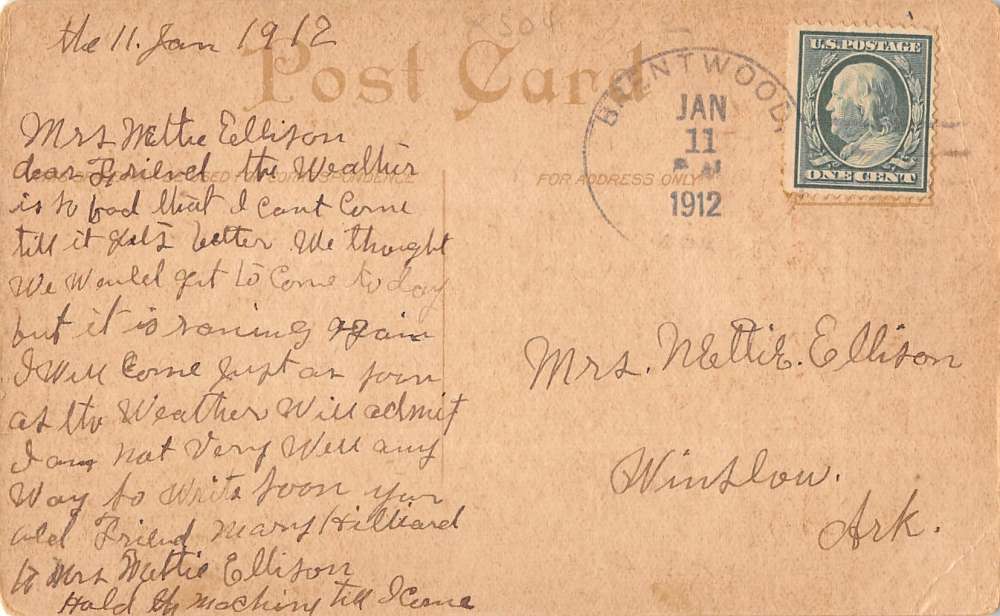 the 11. Jan 1912
Post Card
Mrs Nettie Ellison
dear Friend the Weather
is so bad that I cant Come
till it gets better We thought
We Would get to Come to day
but it is raning again
I Will Come Just as soon
as the Weather Will admit
I am not Very Well any
Way so Write soon your
old Friend Mary Hilliard
to Mrs Nettie Ellison
Hold the maching till I Come
FOR ADDRESS ONLY
BRENTWOOD,
JAN
11
1912
U.S. POSTAGE
ONE CENT
Mrs. Nettie. Ellison
Winslow.
Ark.